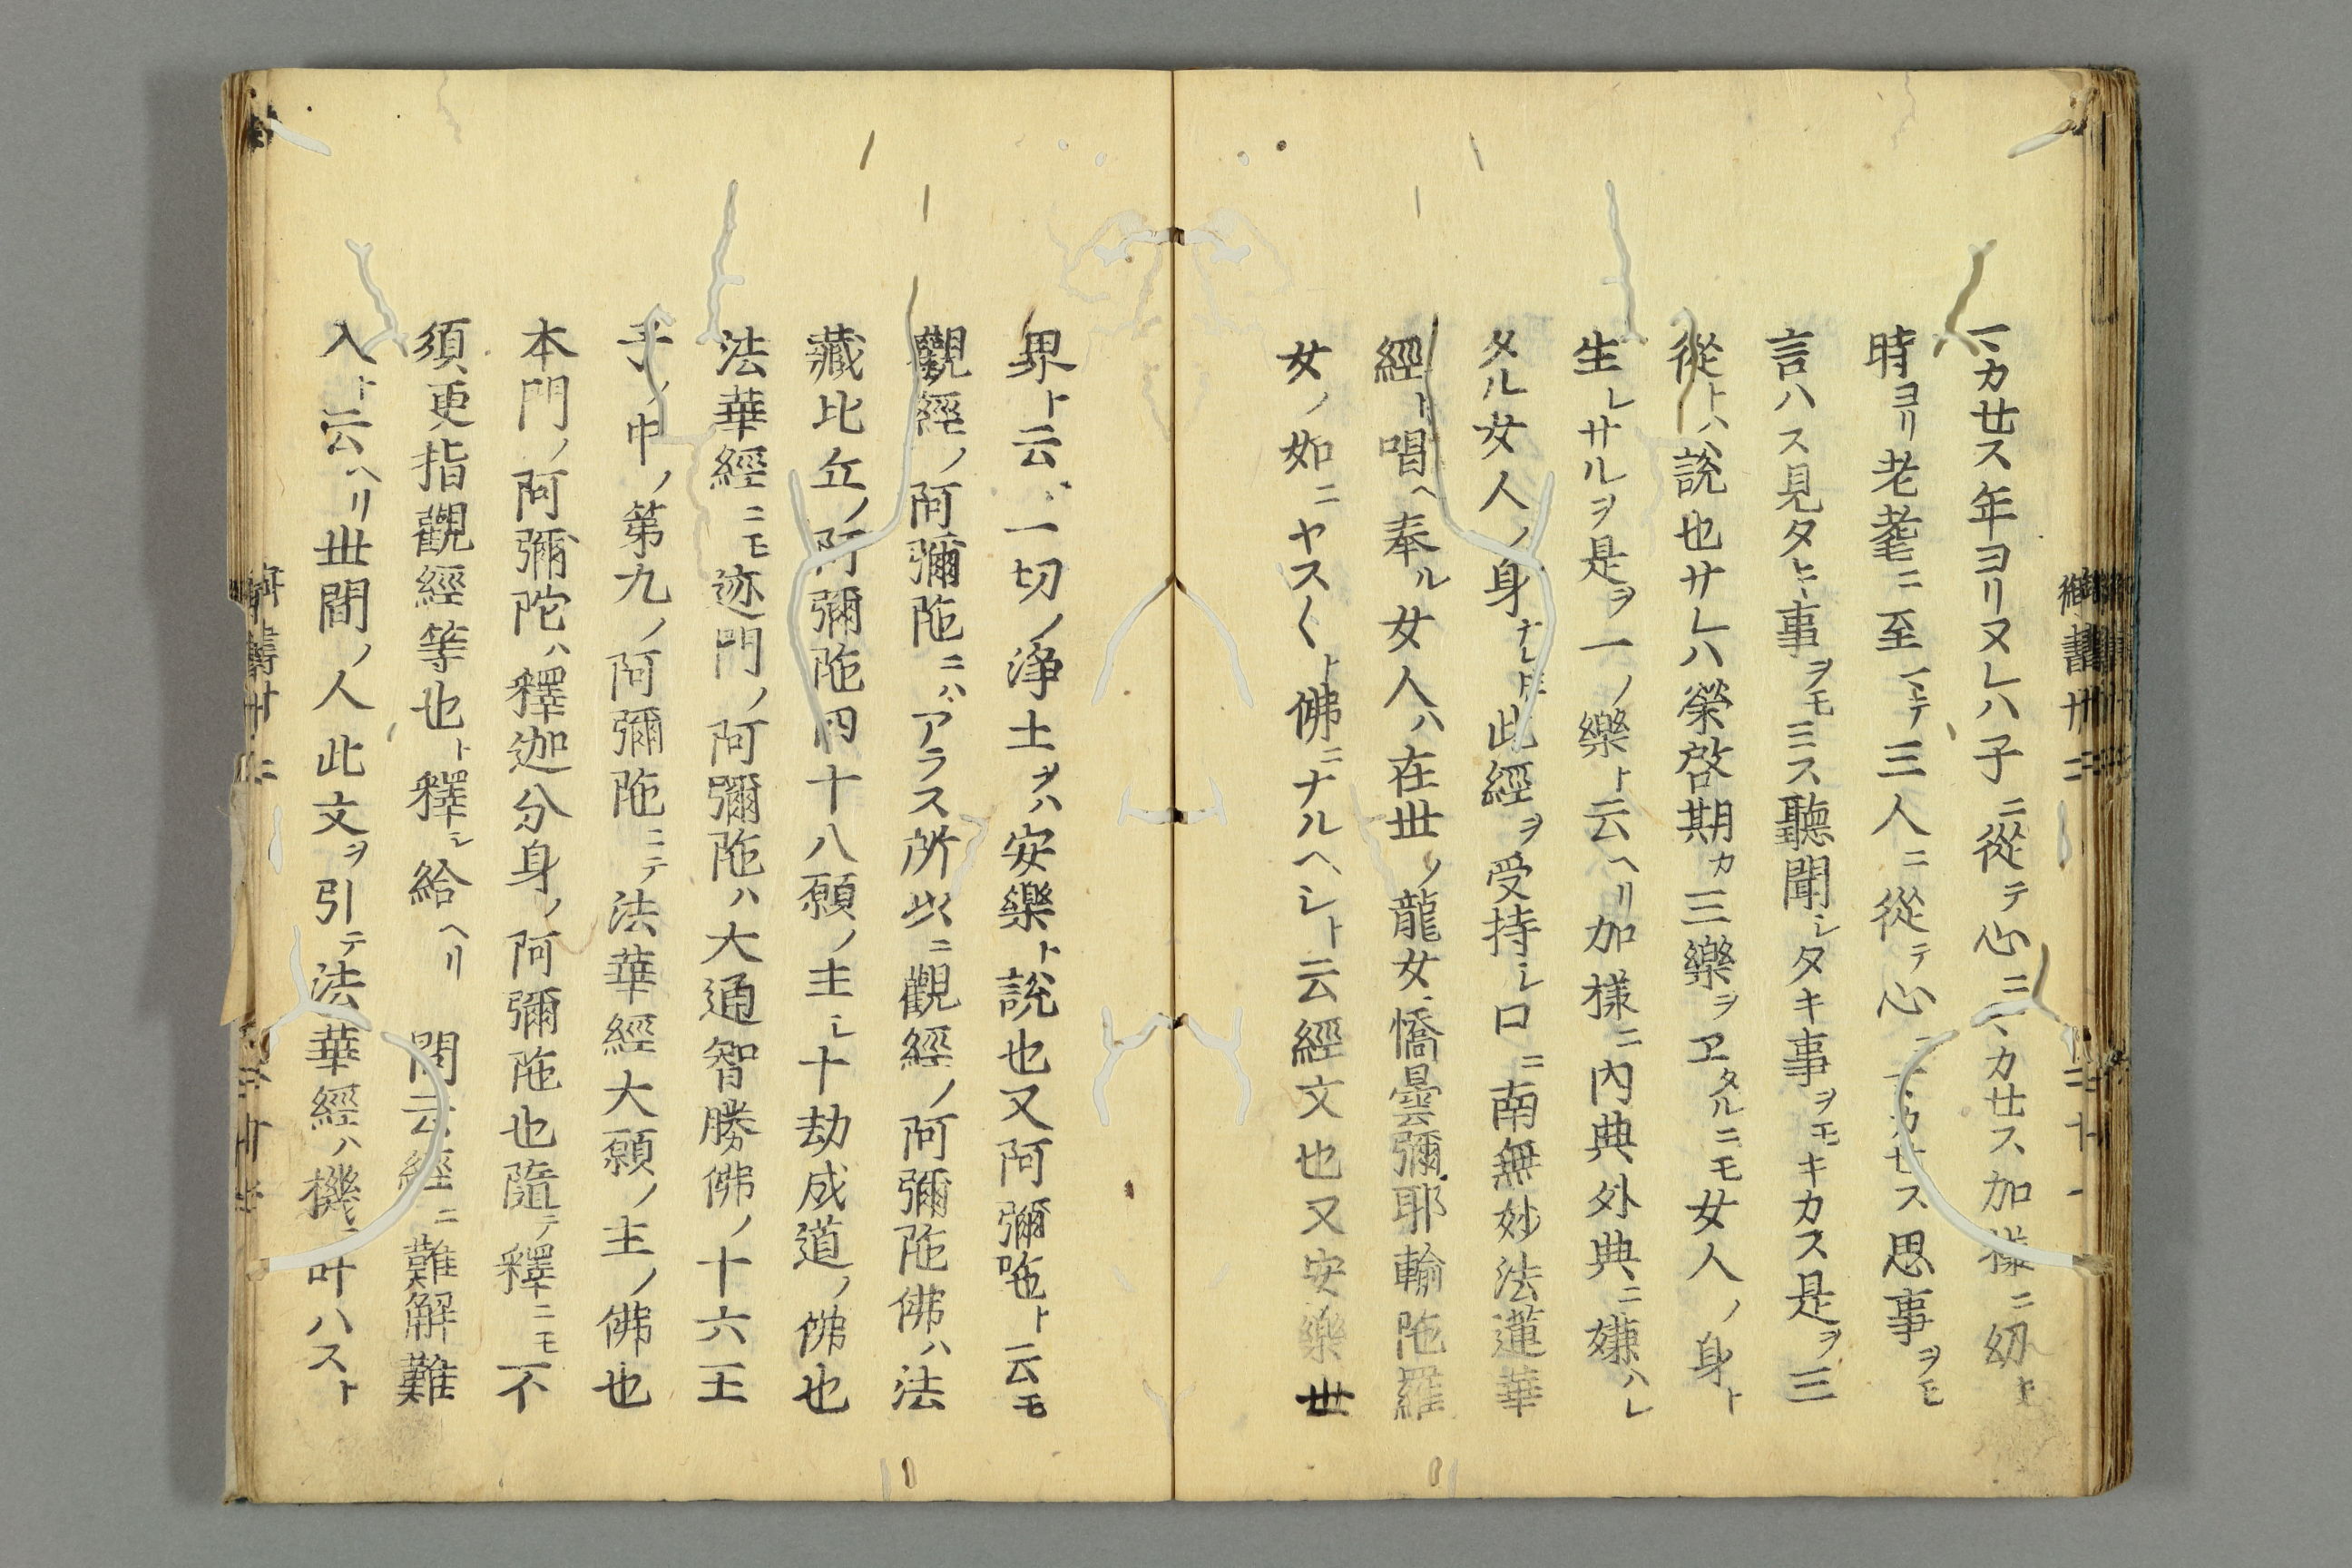 マカセス年ヨリヌレハ子ニ從テ心ニマカセス加樣ニ幼ト
時ヨリ老耄ニ至マテ三人ニ從テ心ニマカセス思事ヲモ
言ハス見タキ事ヲモミス聽聞シタキ事ヲモキカス是ヲ三
從トハ說也サレハ榮啓期カ三樂ヲヱタルニモ女人ノ身ト
生レサルヲ是ヲ一ノ樂ト云ヘリ加樣ニ內典外典ニ嫌ハレ
タル女人ノ身ナレ𪜈此經ヲ受持シ口ニ南無妙法蓮華
經ト唱ヘ奉ル女人ハ在世ノ龍女憍曇彌耶輸陁羅
女ノ如ニヤス〱ト佛ニナルヘシト云經文也又安樂世
御書卅二
二十一
界ト云ハ一切ノ淨土ヲハ安樂ト說也又阿彌陁ト云モ
觀經ノ阿彌陁ニハアラス所以ニ觀經ノ阿彌陁佛ハ法
藏比丘ノ阿彌陁四十八願ノ主シ十劫成道ノ佛也
法華經ニモ迹門ノ阿彌陁ハ大通智勝佛ノ十六王
子ノ中ノ第九ノ阿彌陁ニテ法華經大願ノ主ノ佛也
本門ノ阿彌陀ハ釋迦分身ノ阿彌陁也隨テ釋ニモ不
須更指觀經等也ト釋シ給ヘリ 問云經ニ難解難
入ト云ヘリ世間ノ人此文ヲ引テ法華經ハ機ニ叶ハスト